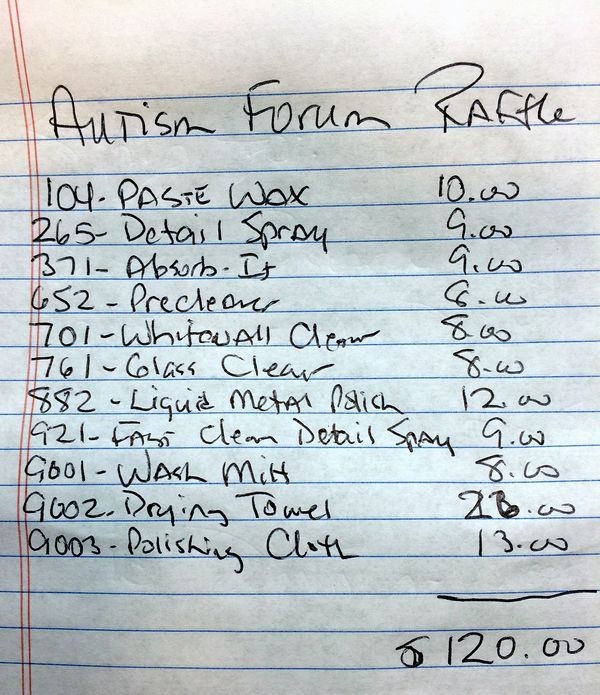 Autism Forum Raffle
104- Paste Wax 10.00
265- Detail Spray 9.00
371- Absorb-It 9.00
652- Precleaner 8.00
701- Whitewall Cleaner 8.00
761- Glass Cleaner 8.00
882- Liquid Metal Polish 12.00
921- Fast Clean Detail Spray 9.00
9001- Wash Mitt 8.00
9002- Drying Towel 26.00
9003- Polishing Cloth 13.00
$120.00